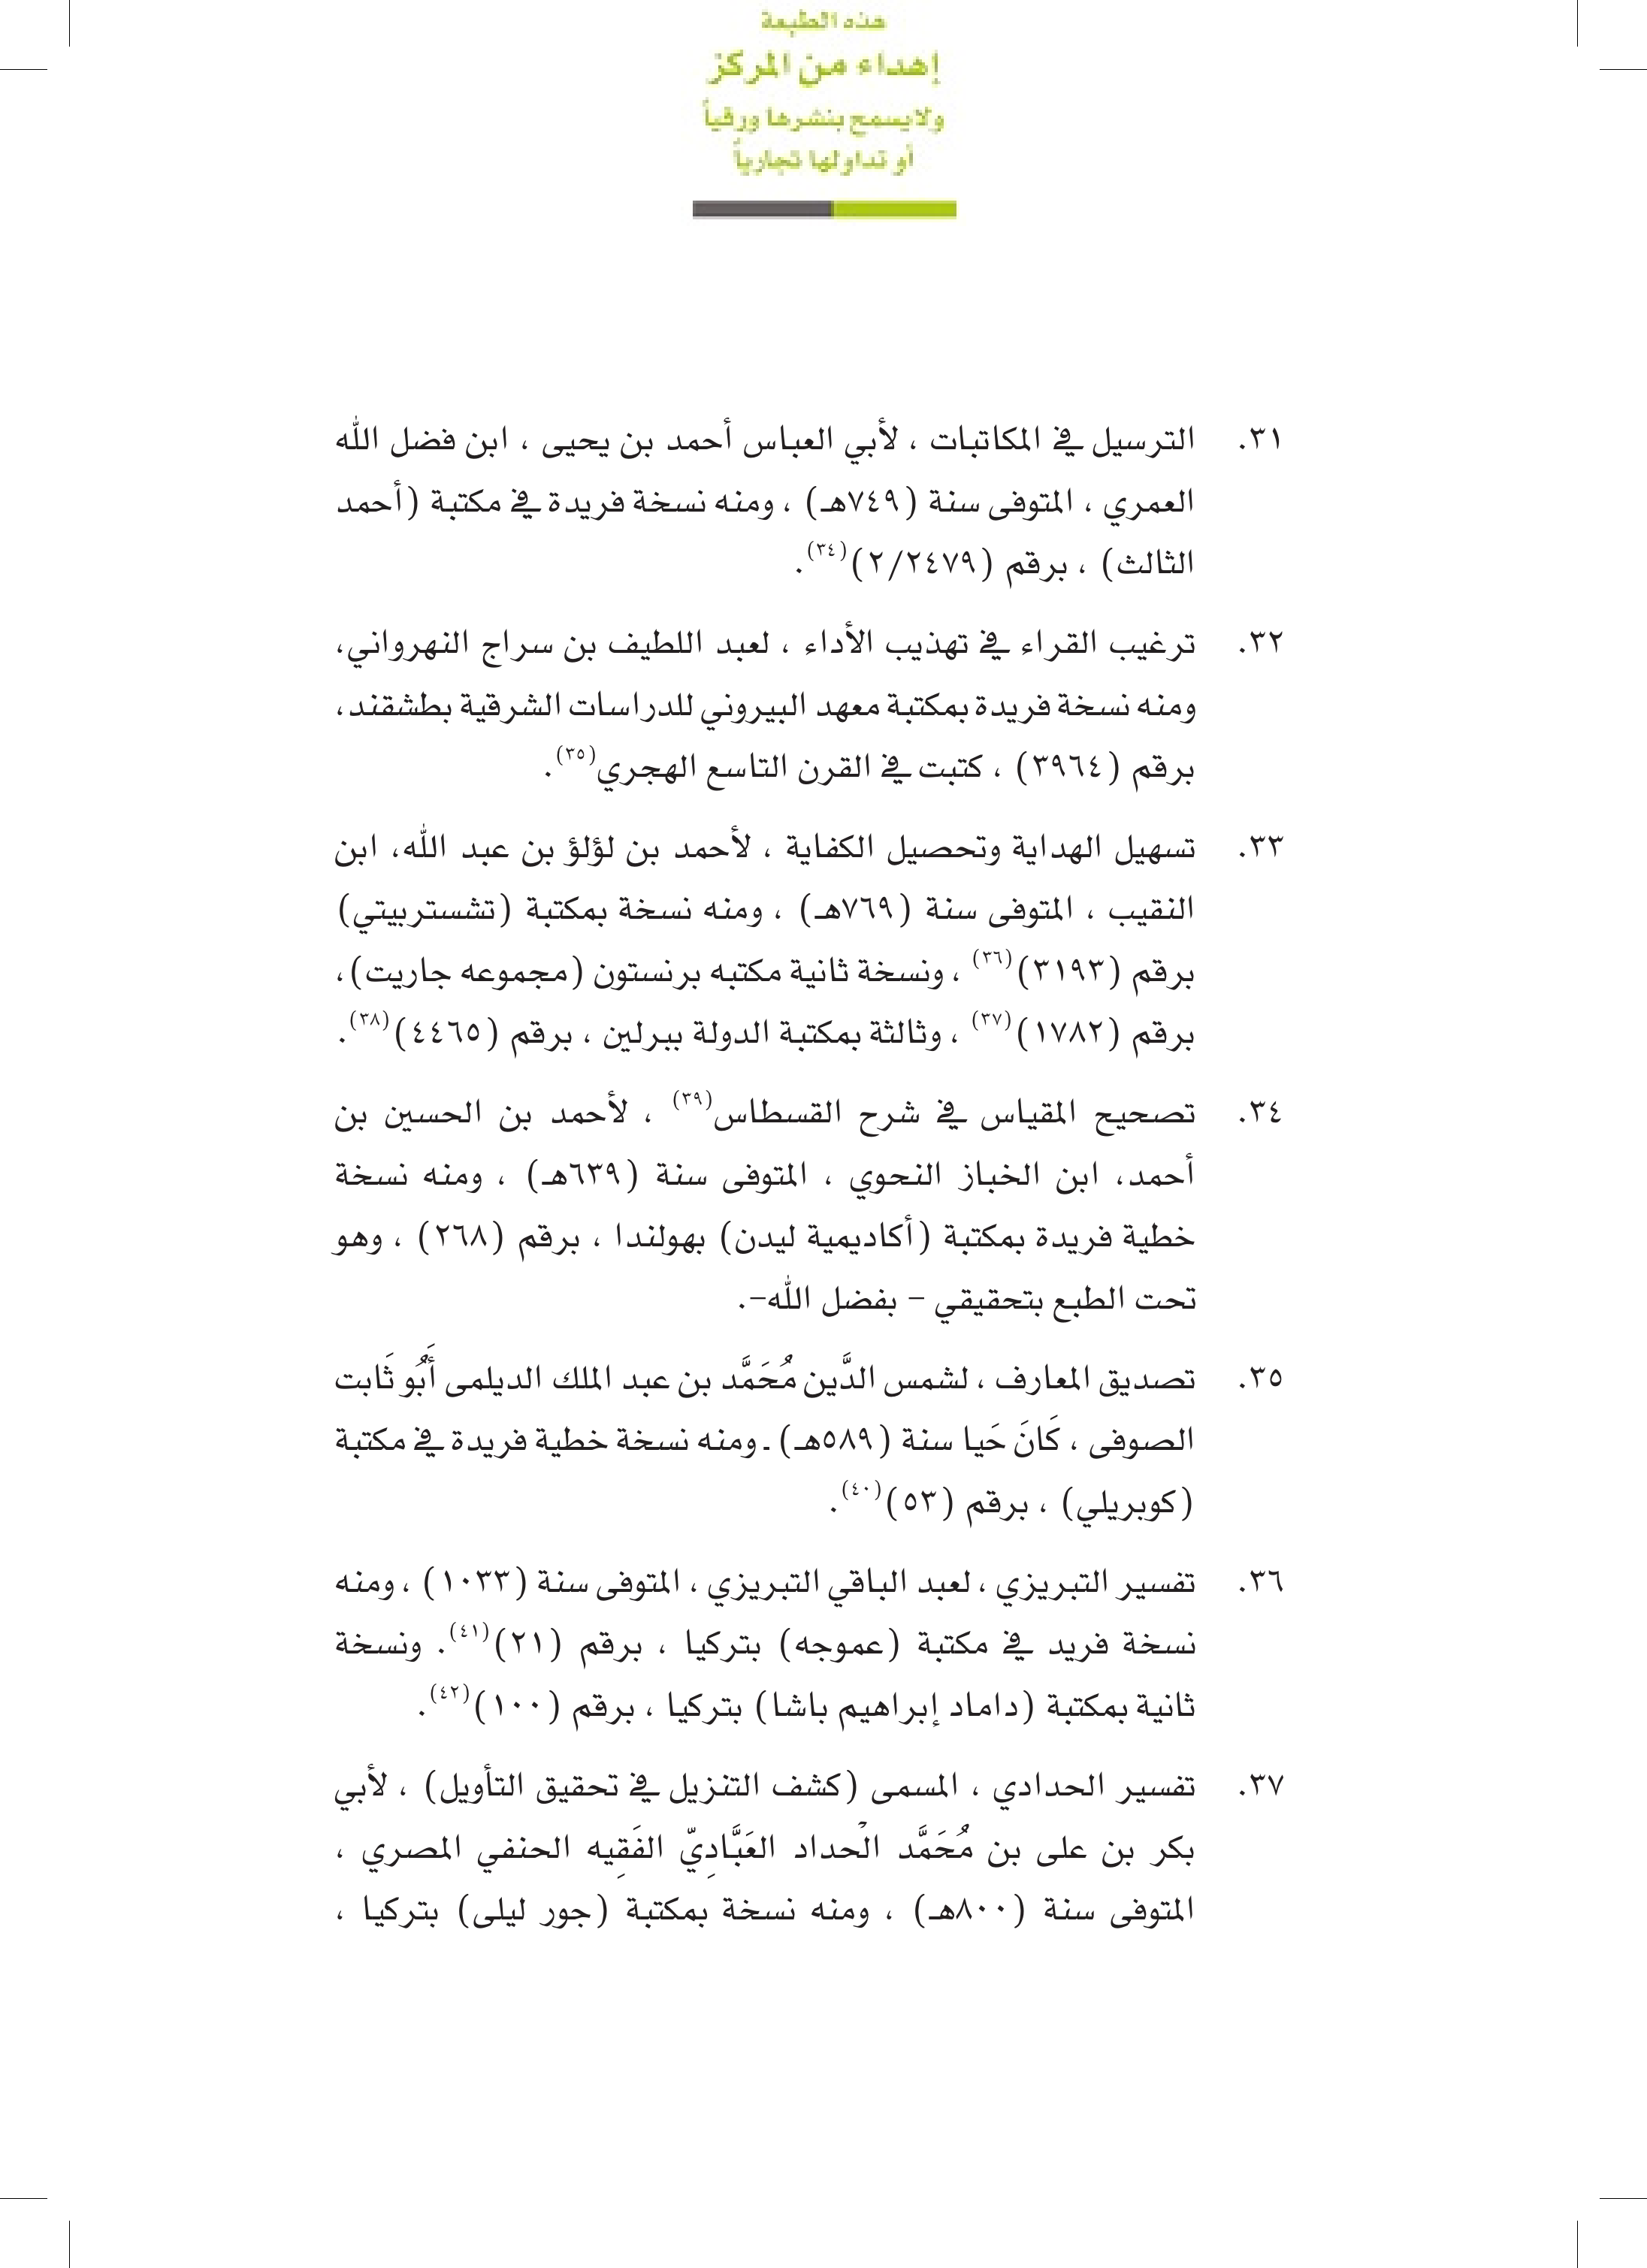 هذه الطبعة
إهداء من المركز
ولايسمح بنشرها ورقياً
أو تداولها تجارياً
٣١. الترسيل في المكاتبات ، لأبي العباس أحمد بن يحيى ، ابن فضل الله
العمري ، المتوفى سنة (٧٤٩هـ) ، ومنه نسخة فريدة في مكتبة (أحمد
الثالث) ، برقم (٢/٢٤٧٩)(٣٤).
٣٢. ترغيب القراء في تهذيب الأداء ، لعبد اللطيف بن سراج النهرواني،
ومنه نسخة فريدة بمكتبة معهد البيروني للدراسات الشرقية بطشقند،
برقم (٣٩٦٤) ، كتبت في القرن التاسع الهجري(٣٥).
٣٣. تسهيل الهداية وتحصيل الكفاية ، لأحمد بن لؤلؤ بن عبد الله، ابن
النقيب ، المتوفى سنة (٧٦٩هـ) ، ومنه نسخة بمكتبة (تشستربيتي)
برقم (٣١٩٣)(٣٦) ، ونسخة ثانية مكتبه برنستون (مجموعه جاريت)،
برقم (١٧٨٢)(٣٧) ، وثالثة بمكتبة الدولة ببرلين ، برقم (٤٤٦٥)(٣٨).
٣٤. تصحيح المقياس في شرح القسطاس(٣٩) ، لأحمد بن الحسين بن
أحمد، ابن الخباز النحوي ، المتوفى سنة (٦٣٩هـ) ، ومنه نسخة
خطية فريدة بمكتبة (أكاديمية ليدن) بهولندا ، برقم (٢٦٨) ، وهو
تحت الطبع بتحقيقي – بفضل الله–.
٣٥. تصديق المعارف ، لشمس الدَّين مُحَمَّد بن عبد الملك الديلمى أَبُو ثَابت
الصوفى ، كَانَ حَيا سنة (٥٨٩هـ) . ومنه نسخة خطية فريدة في مكتبة
(كوبريلي) ، برقم (٥٣)(٤٠).
٣٦. تفسير التبريزي ، لعبد الباقي التبريزي ، المتوفى سنة (١٠٣٣) ، ومنه
نسخة فريد في مكتبة (عموجه) بتركيا ، برقم (٢١)(٤١). ونسخة
ثانية بمكتبة (داماد إبراهيم باشا) بتركيا ، برقم (١٠٠)(٤٢).
٣٧. تفسير الحدادي ، المسمى (كشف التنزيل في تحقيق التأويل) ، لأبي
بكر بن على بن مُحَمَّد الْحداد العَبَّادِيّ الفَقِيه الحنفي المصري ،
المتوفى سنة (٨٠٠هـ) ، ومنه نسخة بمكتبة (جور ليلى) بتركيا ،